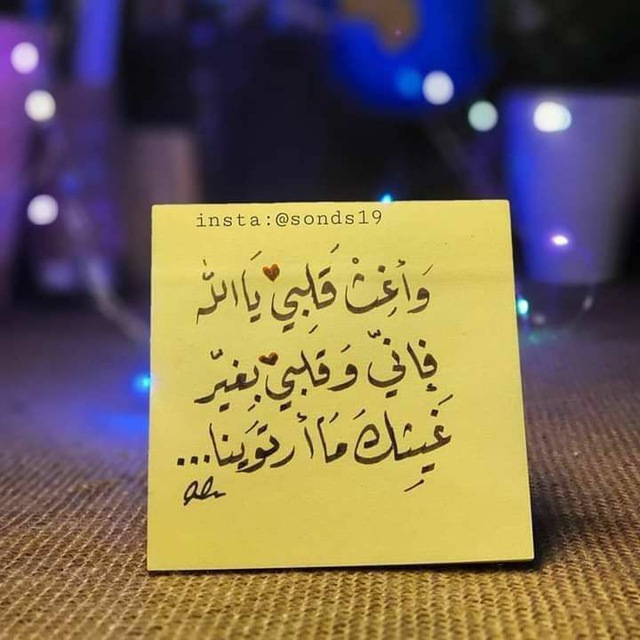 insta:@sonds19
وَأَغِثْ قَلِبي يَا الله
فإنيّ وَقلبي بِغيّر
غَيِثِكَ مَا أرتوَينا...